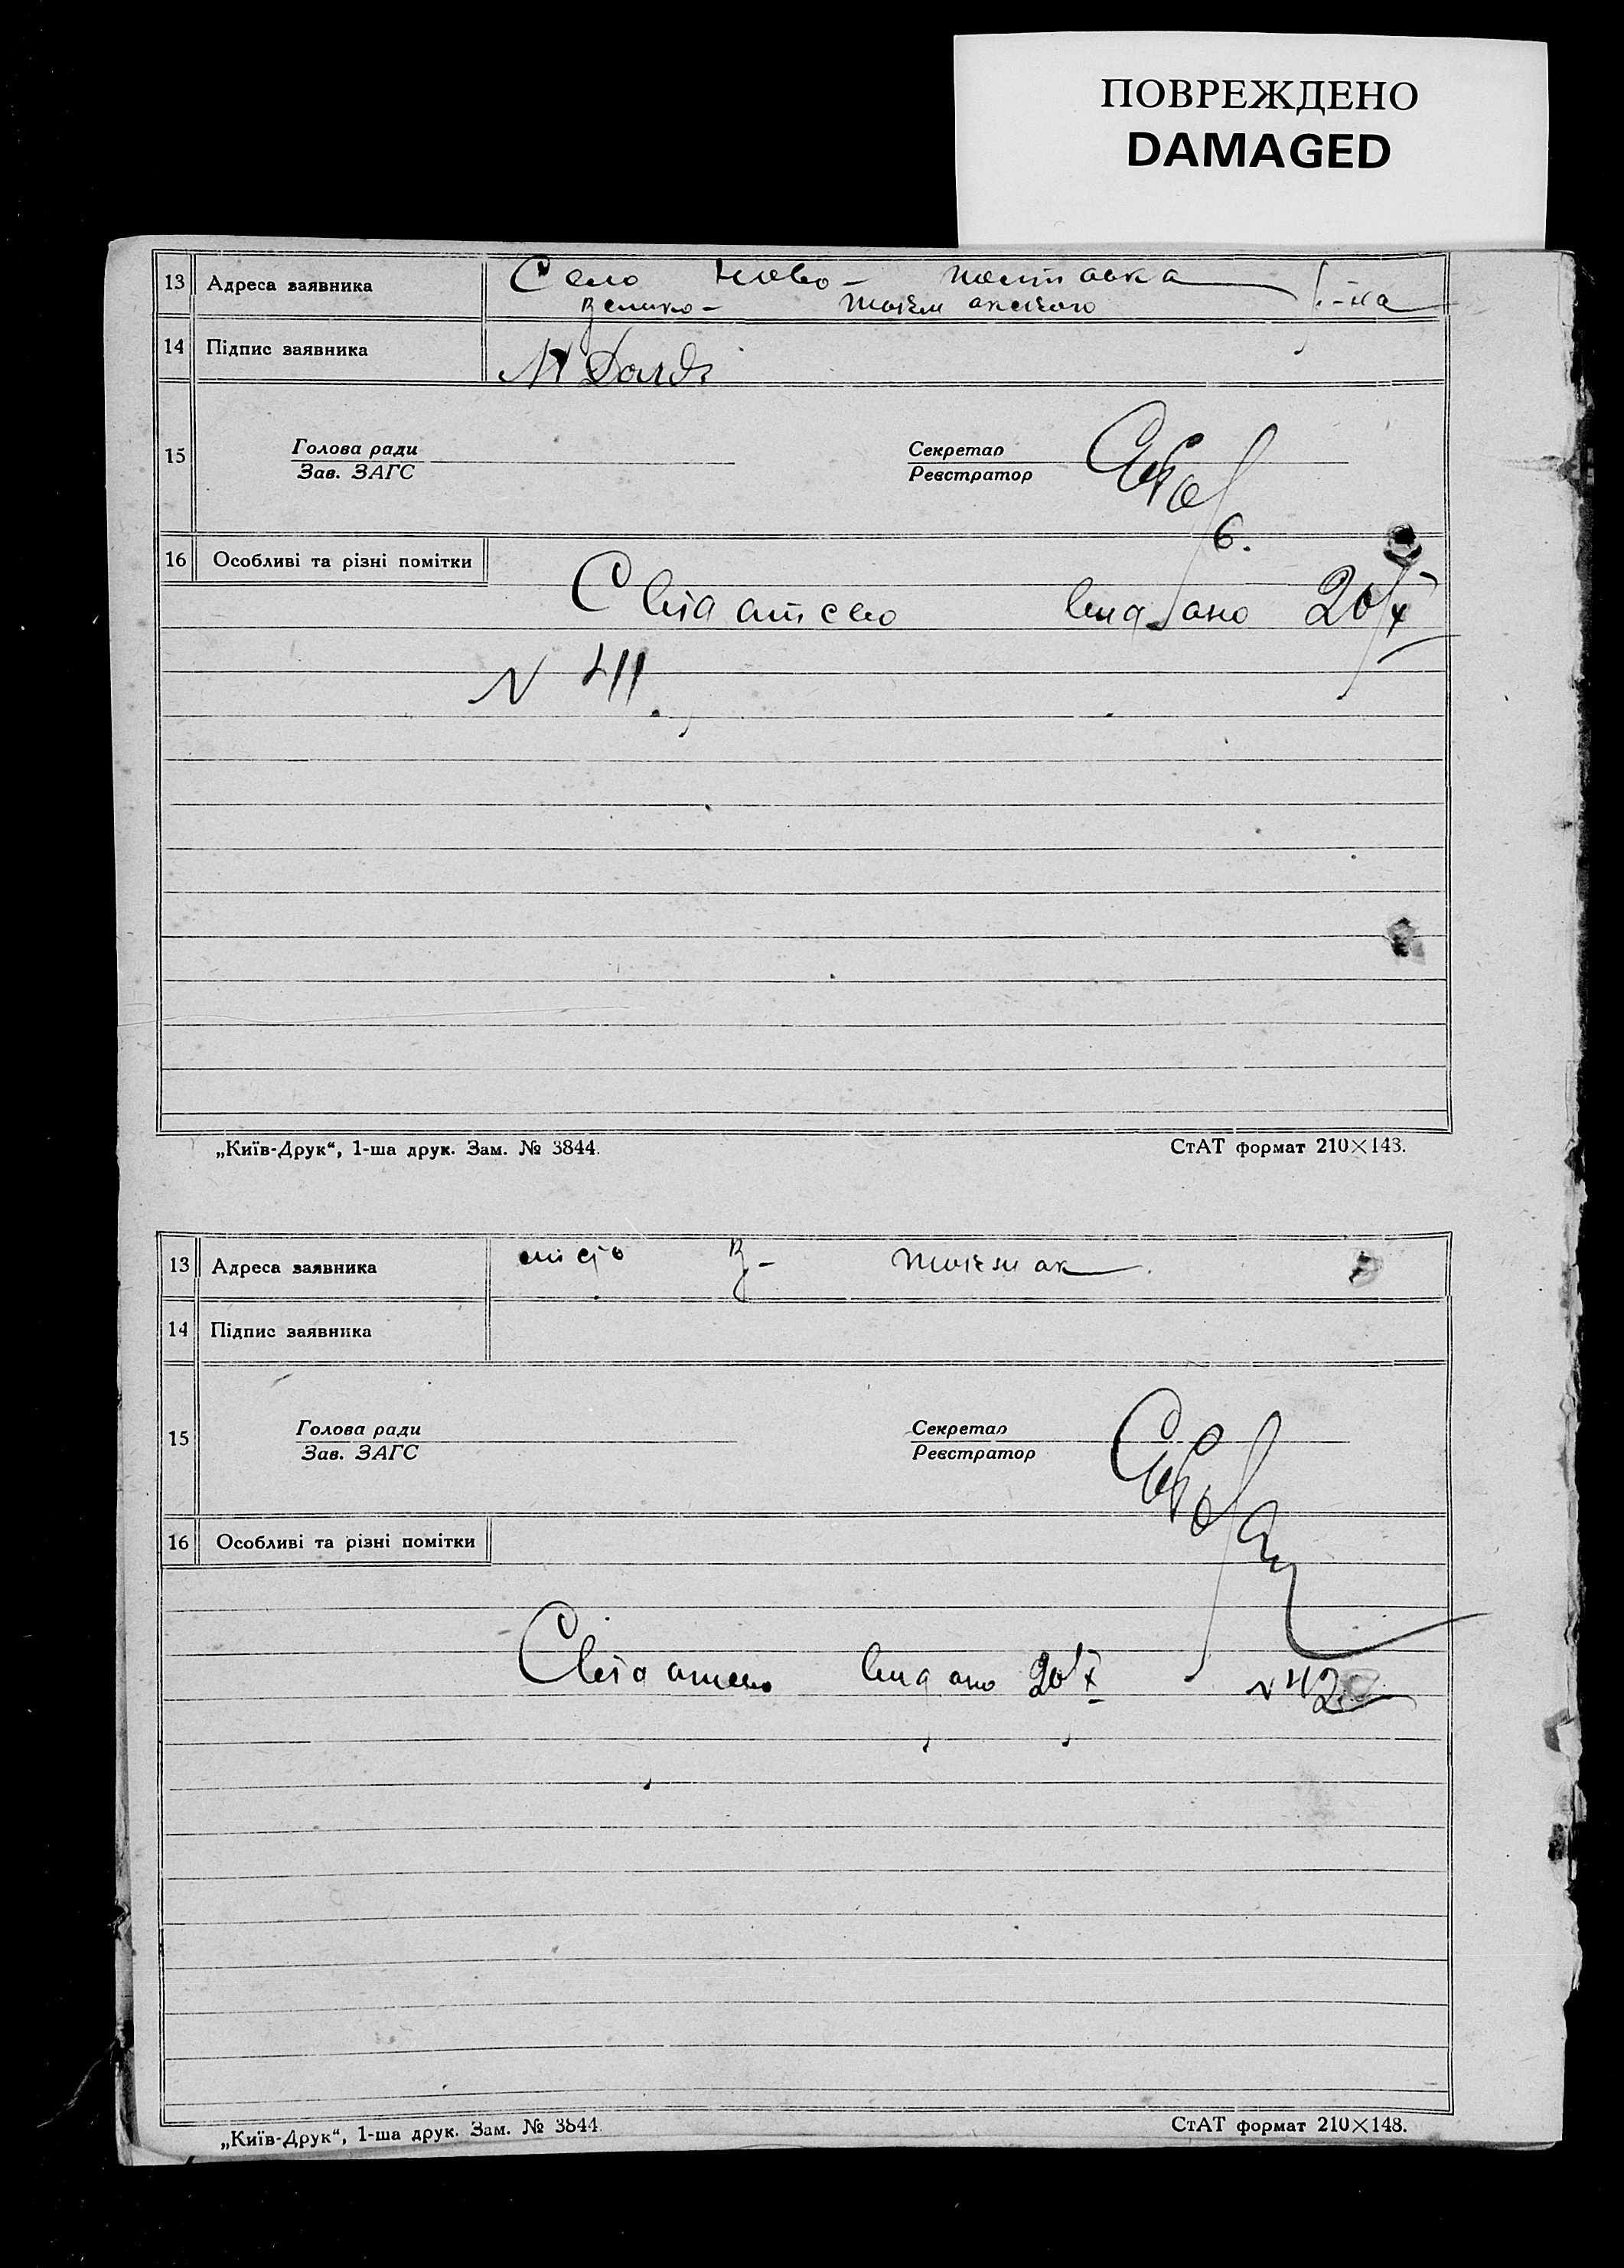 ПОВРЕЖДЕНО
DAMAGED
13 Адреса заявника Село Ново- полтавка р.-на
Велико- Токмакського
14 Підпис заявника
15 Голова ради Секретар
Зав. ЗАГС Реєстратор
16 Особливі та різні помітки
Свідатсво видано 20/X
N 411
„Київ-Друк“, 1-ша друк. Зам. № 3844. СтАТ формат 210×143.
13 Адреса заявника місто В- Токмак.
14 Підпис заявника
15 Голова ради Секретар
Зав. ЗАГС Реєстратор
16 Особливі та різні помітки
Свідатсво видано 20/X
„Київ-Друк“, 1-ша друк. Зам. № 3844 СтАТ формат 210×148.